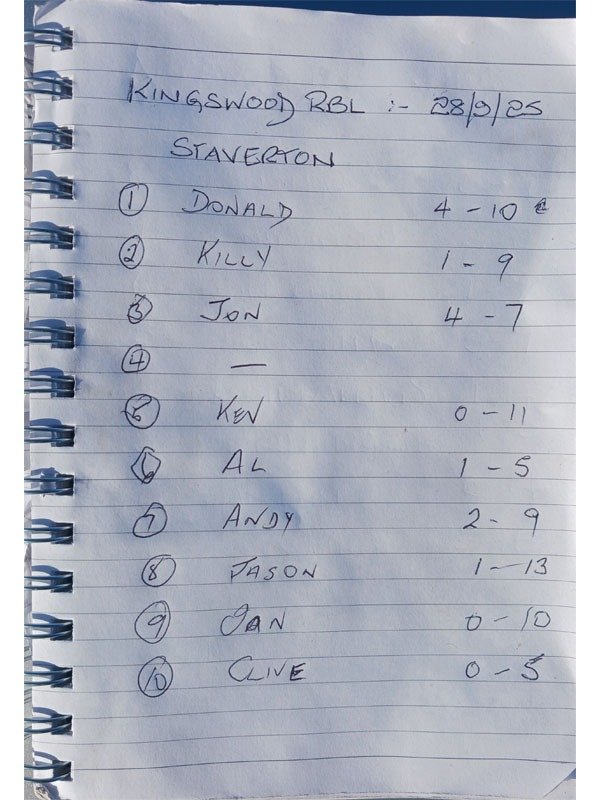 KINGSWOOD RBL :- 28/9/25
STAVERTON
① DONALD 4 - 10
② KILLY 1 - 9
③ JON 4 - 7
④ —
⑤ KEN 0 - 11
⑥ AL 1 - 5
⑦ ANDY 2 - 9
⑧ JASON 1 - 13
⑨ 0 - 10
⑩ CLIVE 0 - 5